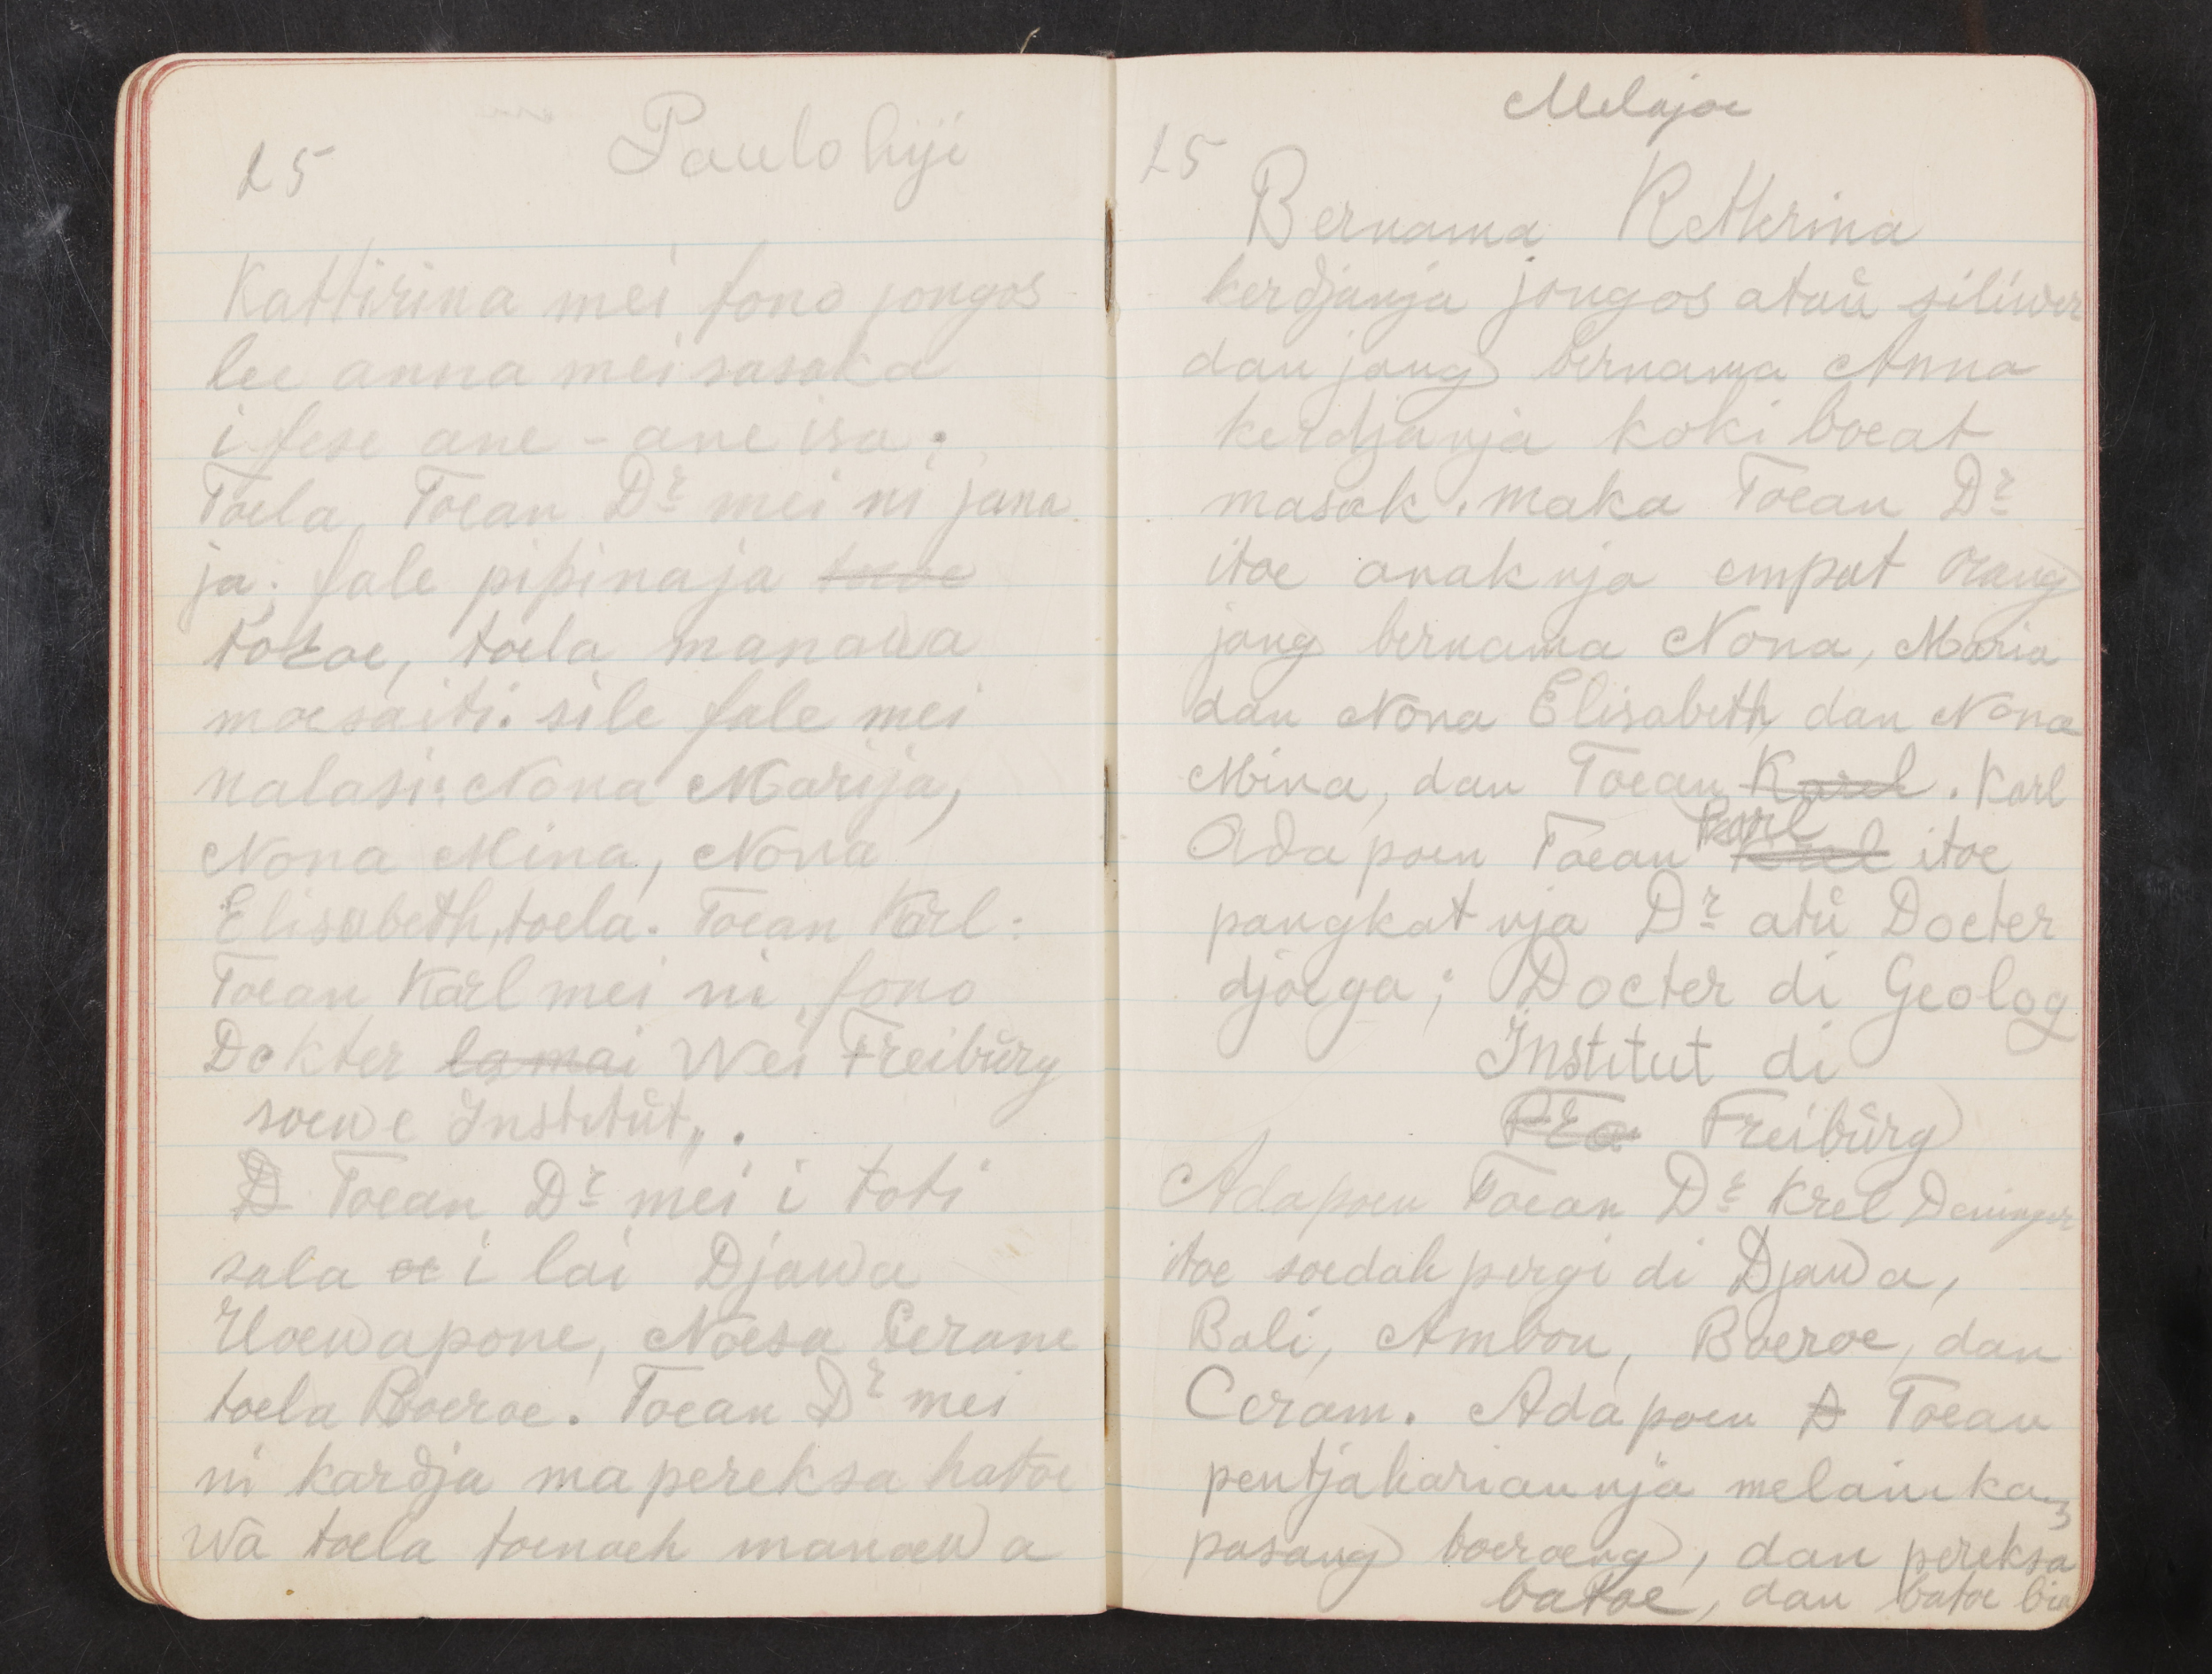 25 Paulohiji
Kattirina mei fono jongos
lee anna mei sasaka
i fese ane - ane isa.
Toela, Toean Dr mei ni jana
ja; fale pipinaja
toeoe, toela manawa
moesaiti. sile fale mei
nalasi: Nona Marija,
Nona Mina, Nona
Elisabeth, toela. Toean Karl:
Toean Karl mei ni fono
Dokter lamai Wei Freibürg
soewe Institüt„.
D Toean Dr mei i toti
sala oe i lai Djawa
Uoewapone, Noesa Cerane
toela Boeroe. Toean Dr mei
ni kardja ma pereksa hatoe
wa toela toenoeh manoewa
Melajoe
25
Bernama Ketherina
kerdjanja jongos ataü siliwer
dan jang bernama Anna
kerdjanja koki boeat
masak. maka Toean Dr
itoe anaknja empat orang
jang bernama Nona, Maria
dan Nona Elisabeth, dan Nona
Mina, dan Toean Karel. Karl
Ada poen Toean Karl Krel itoe
pangkat nja Dr atü Docter
djoega; Docter di Geolog
Institut di
Freibürg
Adapoen Toean Dr Krel Deninger
itoe soedah pergi di Djawa,
Bali, Ambon, Boeroe, dan
Ceram. Adapoen D Toean
pentjahariannja melainkan
pasang boeroeng, dan pereksa
batoe, dan batoe bia